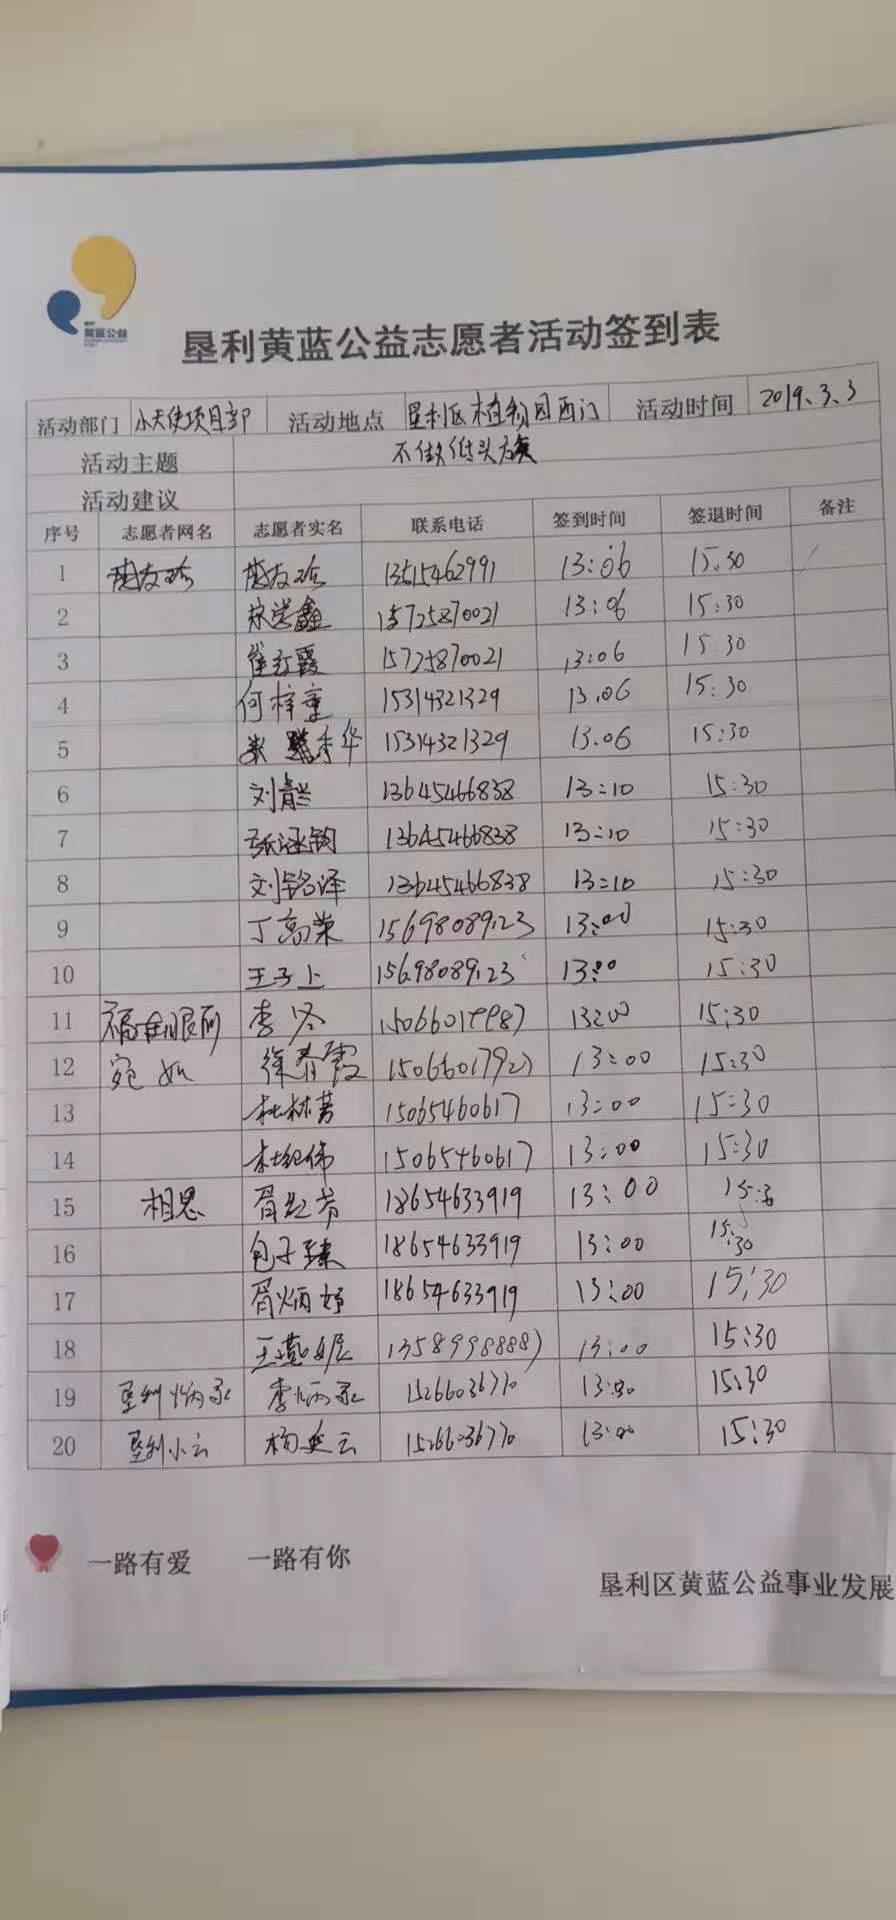 黄蓝公益
垦利黄蓝公益志愿者活动签到表
活动部门 小天使项目部 活动地点 垦利区植物园西门 活动时间 2019.3.3
活动主题 不做低头族
活动建议
序号 志愿者网名 志愿者实名 联系电话 签到时间 签退时间 备注
1 13:06 15:30
2 15725870021 13:06 15:30
3 崔红霞 15725870021 13:06 15:30
4 何梓童 15314321329 13.06 15:30
5 15314321329 13.06 15:30
6 刘青兰 13645466838 13:10 15:30
7 13645466838 13:10 15:30
8 刘铭泽 13645466838 13:10 15:30
9 丁高荣 15698089123 13:00 15:30
10 王子上 15698089123 13:00 15:30
11 李冬 13:00 15:30
12 宛如 徐春霞 13:00 15:30
13 杜林芳 15065460617 13:00 15:30
14 杜纪伟 15065460617 13:00 15:30
15 相思 18654633919 13:00
16 包子臻 18654633919 13:00 15:30
17 胥炳好 18654633919 13:00 15:30
18 13:00 15:30
19 垦利炳承 李炳承 15266036770 13:00 15:30
20 垦利小云 杨延云 15266036770 13:00 15:30
一路有爱 一路有你
垦利区黄蓝公益事业发展